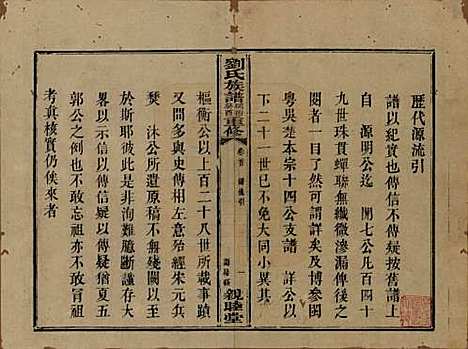 歷代源流引
譜以紀實也傳信不傳疑按舊譜上
自 源明公迄 開七公凡百四十
九世珠貫蟬聯無纖微滲漏俾後之
閱者一目了然可謂詳矣及博參閩
粵吳楚本宗十四公支譜 㝷公以
下二十一世已不免大同小異其
劉氏族譜
癸酉重修
卷首 源流引
一
親睦堂
樞衡公以上百二十八世所載事蹟
人數與史傳相左尤意殆經朱元兵
燹 沐公所遺原稿不無殘闕以至
於斯耶彼此是非洵難臆斷今譜亦
畧以示信以傳信以傳疑猶夏五
郭公之例不敢忘祖亦不敢誣祖也
考眞核實仍俟來者